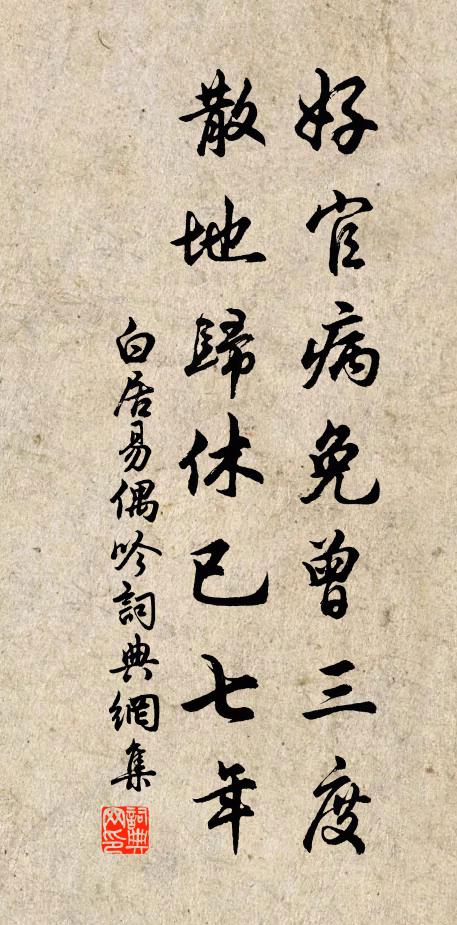 好官病免曾三度
散地歸休已七年
白居易偶吟詞典網集
詞典網印